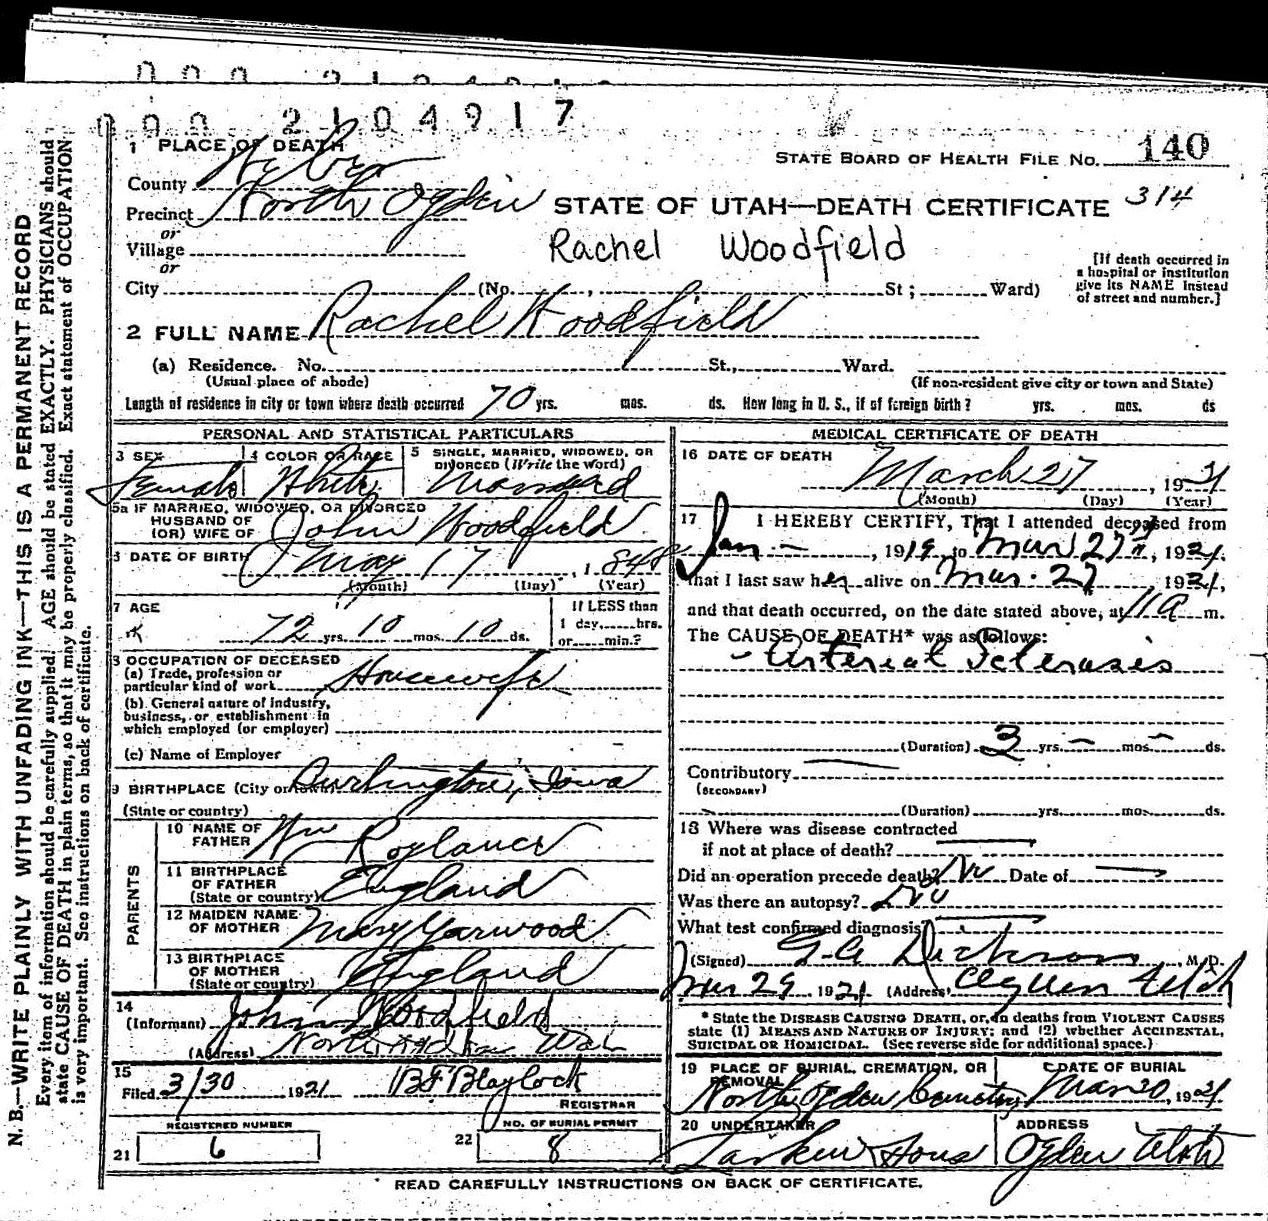 000 2104917
1 PLACE OF DEATH
STATE BOARD OF HEALTH FILE No. 140
County Weber
314
Precinct North Ogden
STATE OF UTAH—DEATH CERTIFICATE
or
Village
Rachel Woodfield
or
[If death occurred in
a hospital or institution
give its NAME instead
of street and number.]
City (No. , St; Ward)
2 FULL NAME Rachel Woodfield
(a) Residence. No. St., Ward.
(Usual place of abode) (If non-resident give city or town and State)
Length of residence in city or town where death occurred 70 yrs. mos. ds. How long in U. S., if of foreign birth? yrs. mos. ds
PERSONAL AND STATISTICAL PARTICULARS
3 SEX Female
4 COLOR OR RACE White
5 SINGLE, MARRIED, WIDOWED, OR
DIVORCED (Write the word)
5a IF MARRIED, WIDOWED, OR DIVORCED
HUSBAND OF
(OR) WIFE OF John Woodfield
6 DATE OF BIRTH May 17, 1848
(Month) (Day) (Year)
7 AGE
72 yrs. 10 mos. 10 ds.
If LESS than
1 day, hrs.
or min.?
8 OCCUPATION OF DECEASED
(a) Trade, profession or
particular kind of work Housewife
(b) General nature of industry,
business, or establishment in
which employed (or employer)
(c) Name of Employer
9 BIRTHPLACE (City or town) Burlington, Iowa
(State or country)
PARENTS
10 NAME OF
FATHER Wm Roylance
11 BIRTHPLACE
OF FATHER
(State or country) England
12 MAIDEN NAME
OF MOTHER Mary Yarwood
13 BIRTHPLACE
OF MOTHER
(State or country) England
14
(Informant) John Woodfield
(Address) North Ogden Utah
15
Filed 3/30 1921 BF Blaylock
REGISTRAR
REGISTERED NUMBER
21 6
NO. OF BURIAL PERMIT
22 8
MEDICAL CERTIFICATE OF DEATH
16 DATE OF DEATH
March 27, 1921
(Month) (Day) (Year)
17 I HEREBY CERTIFY, That I attended deceased from
Jan —, 1919 to Mar 27, 1921.
that I last saw her alive on Mar. 27 1921,
and that death occurred, on the date stated above, at 11 a m.
The CAUSE OF DEATH* was as follows:
- Arterial Sclerosis
(Duration) 3 yrs. — mos. — ds.
Contributory
(SECONDARY)
(Duration) yrs. mos. ds.
18 Where was disease contracted
if not at place of death?
Did an operation precede death? No Date of
Was there an autopsy? No
What test confirmed diagnosis
(Signed) G A Dickson M. D.
Mar 29 1921 (Address) Ogden Utah
* State the DISEASE CAUSING DEATH, or, in deaths from VIOLENT CAUSES
state (1) MEANS AND NATURE OF INJURY; and (2) whether ACCIDENTAL,
SUICIDAL OR HOMICIDAL. (See reverse side for additional space.)
19 PLACE OF BURIAL, CREMATION, OR
REMOVAL
North Ogden Cemetery
DATE OF BURIAL
Mar 30, 1921
20 UNDERTAKER
Larkin & Sons
ADDRESS
Ogden Utah
READ CAREFULLY INSTRUCTIONS ON BACK OF CERTIFICATE.
N. B.—WRITE PLAINLY WITH UNFADING INK—THIS IS A PERMANENT RECORD
Every item of information should be carefully supplied. AGE should be stated EXACTLY. PHYSICIANS should
state CAUSE OF DEATH in plain terms, so that it may be properly classified. Exact statement of OCCUPATION
is very important. See instructions on back of certificate.